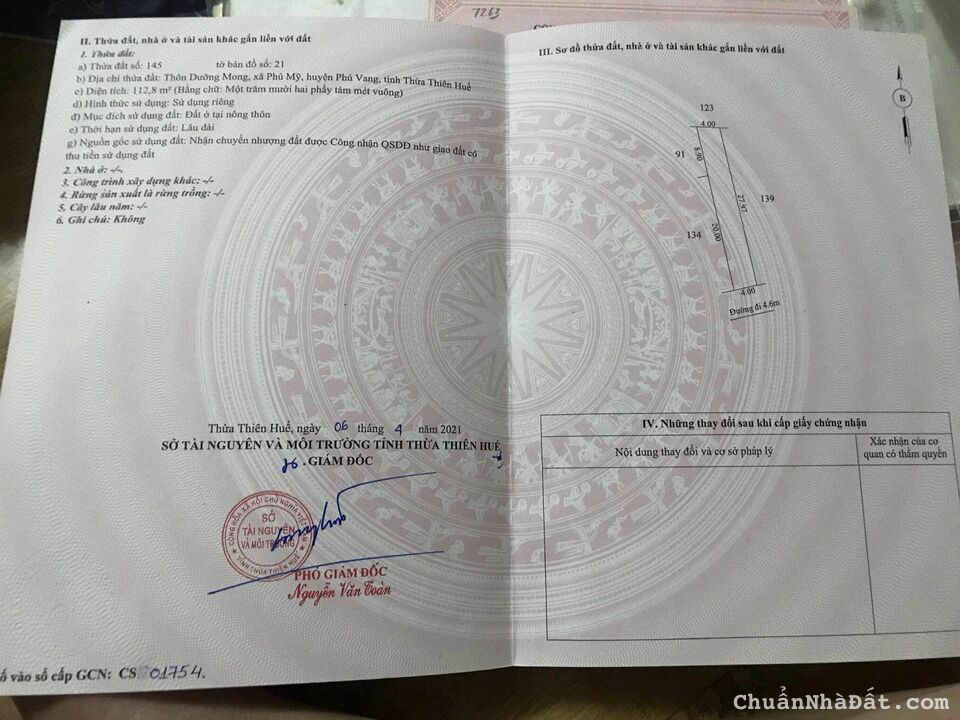 7263
II. Thửa đất, nhà ở và tài sản khác gắn liền với đất
1. Thửa đất:
a) Thửa đất số: 145 tờ bản đồ số: 21
b) Địa chỉ thửa đất: Thôn Dưỡng Mong, xã Phú Mỹ, huyện Phú Vang, tỉnh Thừa Thiên Huế
c) Diện tích: 112,8 m² (Bằng chữ: Một trăm mười hai phẩy tám mét vuông)
d) Hình thức sử dụng: Sử dụng riêng
đ) Mục đích sử dụng đất: Đất ở tại nông thôn
e) Thời hạn sử dụng đất: Lâu dài
g) Nguồn gốc sử dụng đất: Nhận chuyển nhượng đất được Công nhận QSDĐ như giao đất có
thu tiền sử dụng đất
2. Nhà ở: -/-
3. Công trình xây dựng khác: -/-
4. Rừng sản xuất là rừng trồng: -/-
5. Cây lâu năm: -/-
6. Ghi chú: Không
Thừa Thiên Huế, ngày 06 tháng 4 năm 2021
SỞ TÀI NGUYÊN VÀ MÔI TRƯỜNG TỈNH THỪA THIÊN HUẾ
GIÁM ĐỐC
CỘNG HÒA XÃ HỘI CHỦ NGHĨA VIỆT NAM
SỞ
TÀI NGUYÊN
VÀ MÔI TRƯỜNG
TỈNH THỪA THIÊN HUẾ
PHÓ GIÁM ĐỐC
Nguyễn Văn Toàn
ố vào sổ cấp GCN: CS 01754.
III. Sơ đồ thửa đất, nhà ở và tài sản khác gắn liền với đất
B
123
4.00
91
8.00
27.97
139
134
20.00
4.00
Đường đi 4.6m
IV. Những thay đổi sau khi cấp giấy chứng nhận
Nội dung thay đổi và cơ sở pháp lý
Xác nhận của cơ
quan có thẩm quyền
ChuẩnNhàĐất.com